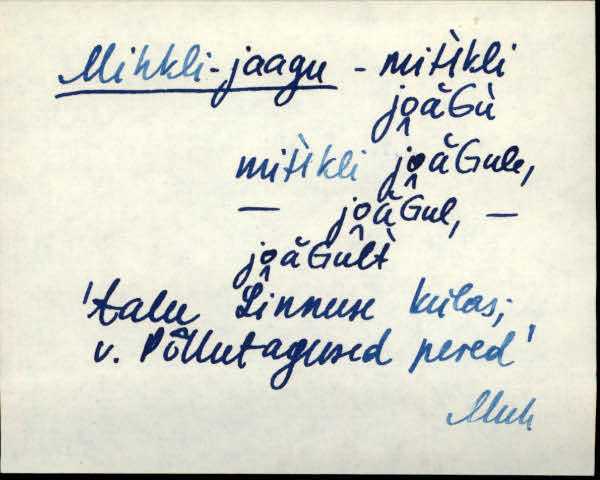 Mihkli-jaagu - mihkli
jo̭ăGu
mihkli jo̭ăGule,
— jo̭ăGul, —
jo̭ăGult
'talu Linnuse külas;
v. Põllutagused pered'
Muh